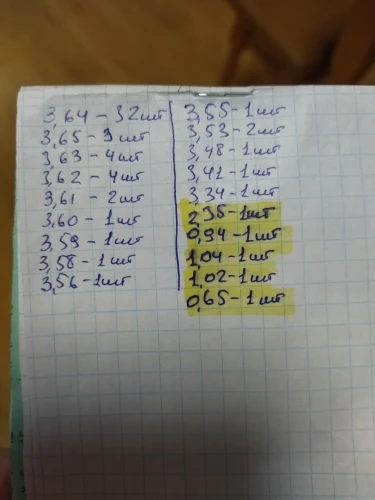 3,64 - 32 шт
3,65 - 9 шт
3,63 - 4 шт
3,62 - 4 шт
3,61 - 2 шт
3,60 - 1 шт
3,59 - 1 шт
3,58 - 1 шт
3,56 - 1 шт
3,55 - 1 шт
3,53 - 2 шт
3,48 - 1 шт
3,41 - 1 шт
3,34 - 1 шт
2,35 - 1 шт
0,94 - 1 шт
1,04 - 1 шт
1,02 - 1 шт
0,65 - 1 шт